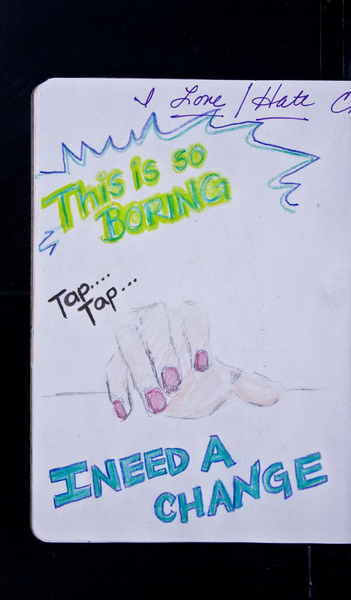 I Love / Hate
This is so
BORING
Tap....
Tap...
I NEED A
CHANGE